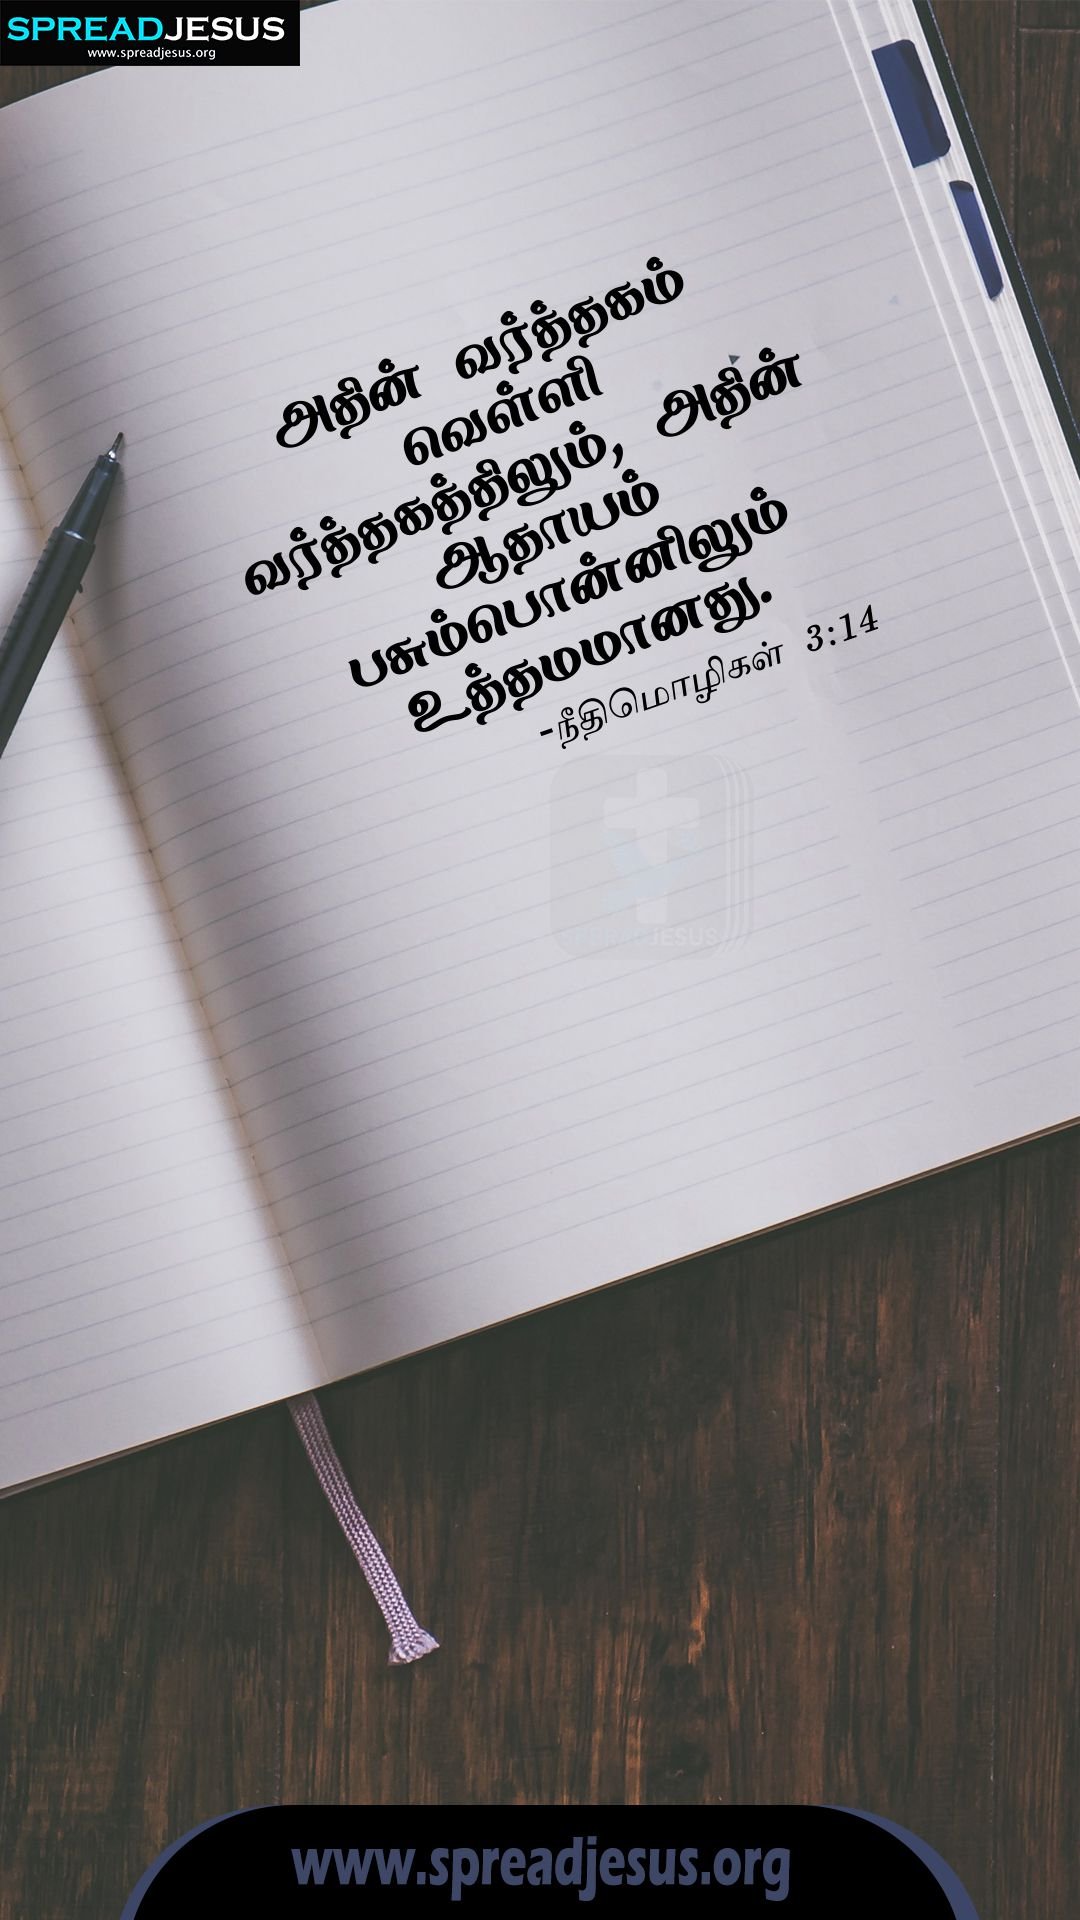 SPREADJESUS
www.spreadjesus.org
அதின் வர்த்தகம்
வெள்ளி
வர்த்தகத்திலும், அதின்
ஆதாயம்
பசும்பொன்னிலும்
உத்தமமானது.
-நீதிமொழிகள் 3:14
SPREADJESUS
www.spreadjesus.org